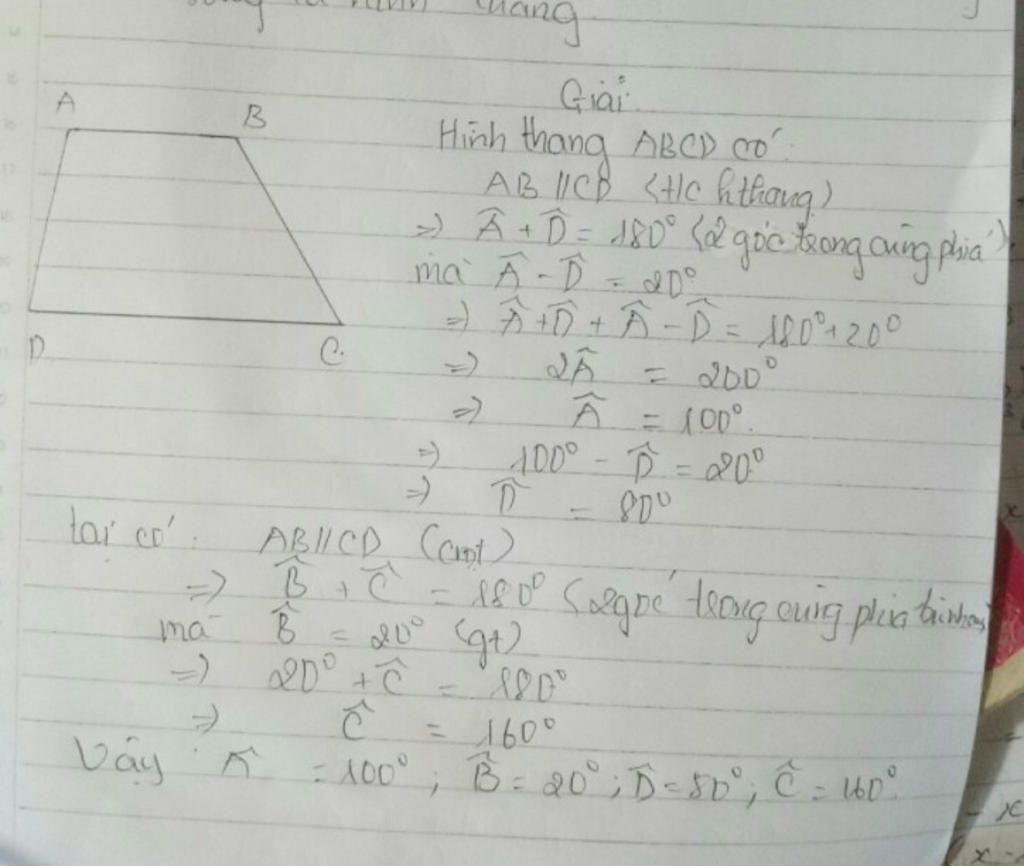 hình thang
Giải
A
B
Hình thang ABCD có:
AB // CD (t/c h thang)
=> Â + D̂ = 180° (2 góc trong cùng phía)
mà Â - D̂ = 20°
=> Â + D̂ + Â - D̂ = 180° + 20°
D
C
=> 2Â = 200°
=> Â = 100°.
=> 100° - D̂ = 20°
=> D̂ = 80°
lại có: AB // CD (cmt)
=> B̂ + Ĉ = 180° (2 góc trong cùng phía
mà B̂ = 20° (gt)
=> 20° + Ĉ = 180°
=> Ĉ = 160°
Vậy Â = 100°; B̂ = 20°; D̂ = 80°; Ĉ = 160°.